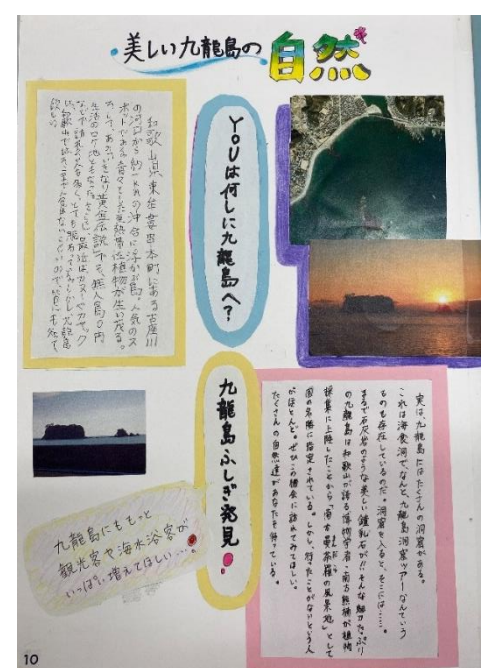 美しい九龍島の自然
YOUは何しに九龍島へ？
和歌山県東牟婁郡串本町にある古座川
の河口から約1kmの沖合に浮かぶ島。人気のス
ポットである。青々とした亜熱帯性植物が生い茂る。
そして、あの「いきなり黄金伝説」でも、無人島0円
生活のロケ地ともなった。さらに、最近はカヌーやカヤック
などで訪れる人も多く、とても賑わっている。しかし、九龍島
は、和歌山で
欲しい。
九龍島ふしぎ発見
実は、九龍島にはたくさんの洞窟がある。
これは海食洞で、なんと、九龍島洞窟ツアーなんていう
ものも存在しているのだ。洞窟を入ると、そこには……。
まるで石灰岩のような美しい鍾乳石が!!そんな魅力たっぷり
の九龍島は和歌山が誇る博物学者・南方熊楠が植物
採集に上陸したことから「南方曼荼羅の風景地」として
国の名勝に指定されている。しかし、行ったことがないという人
がほとんど。ぜひこの機会に訪れてみてほしい。
たくさんの自然達があなたを待っている。
九龍島にももっと
観光客や海水浴客が
いっぱい増えてほしい…。
10